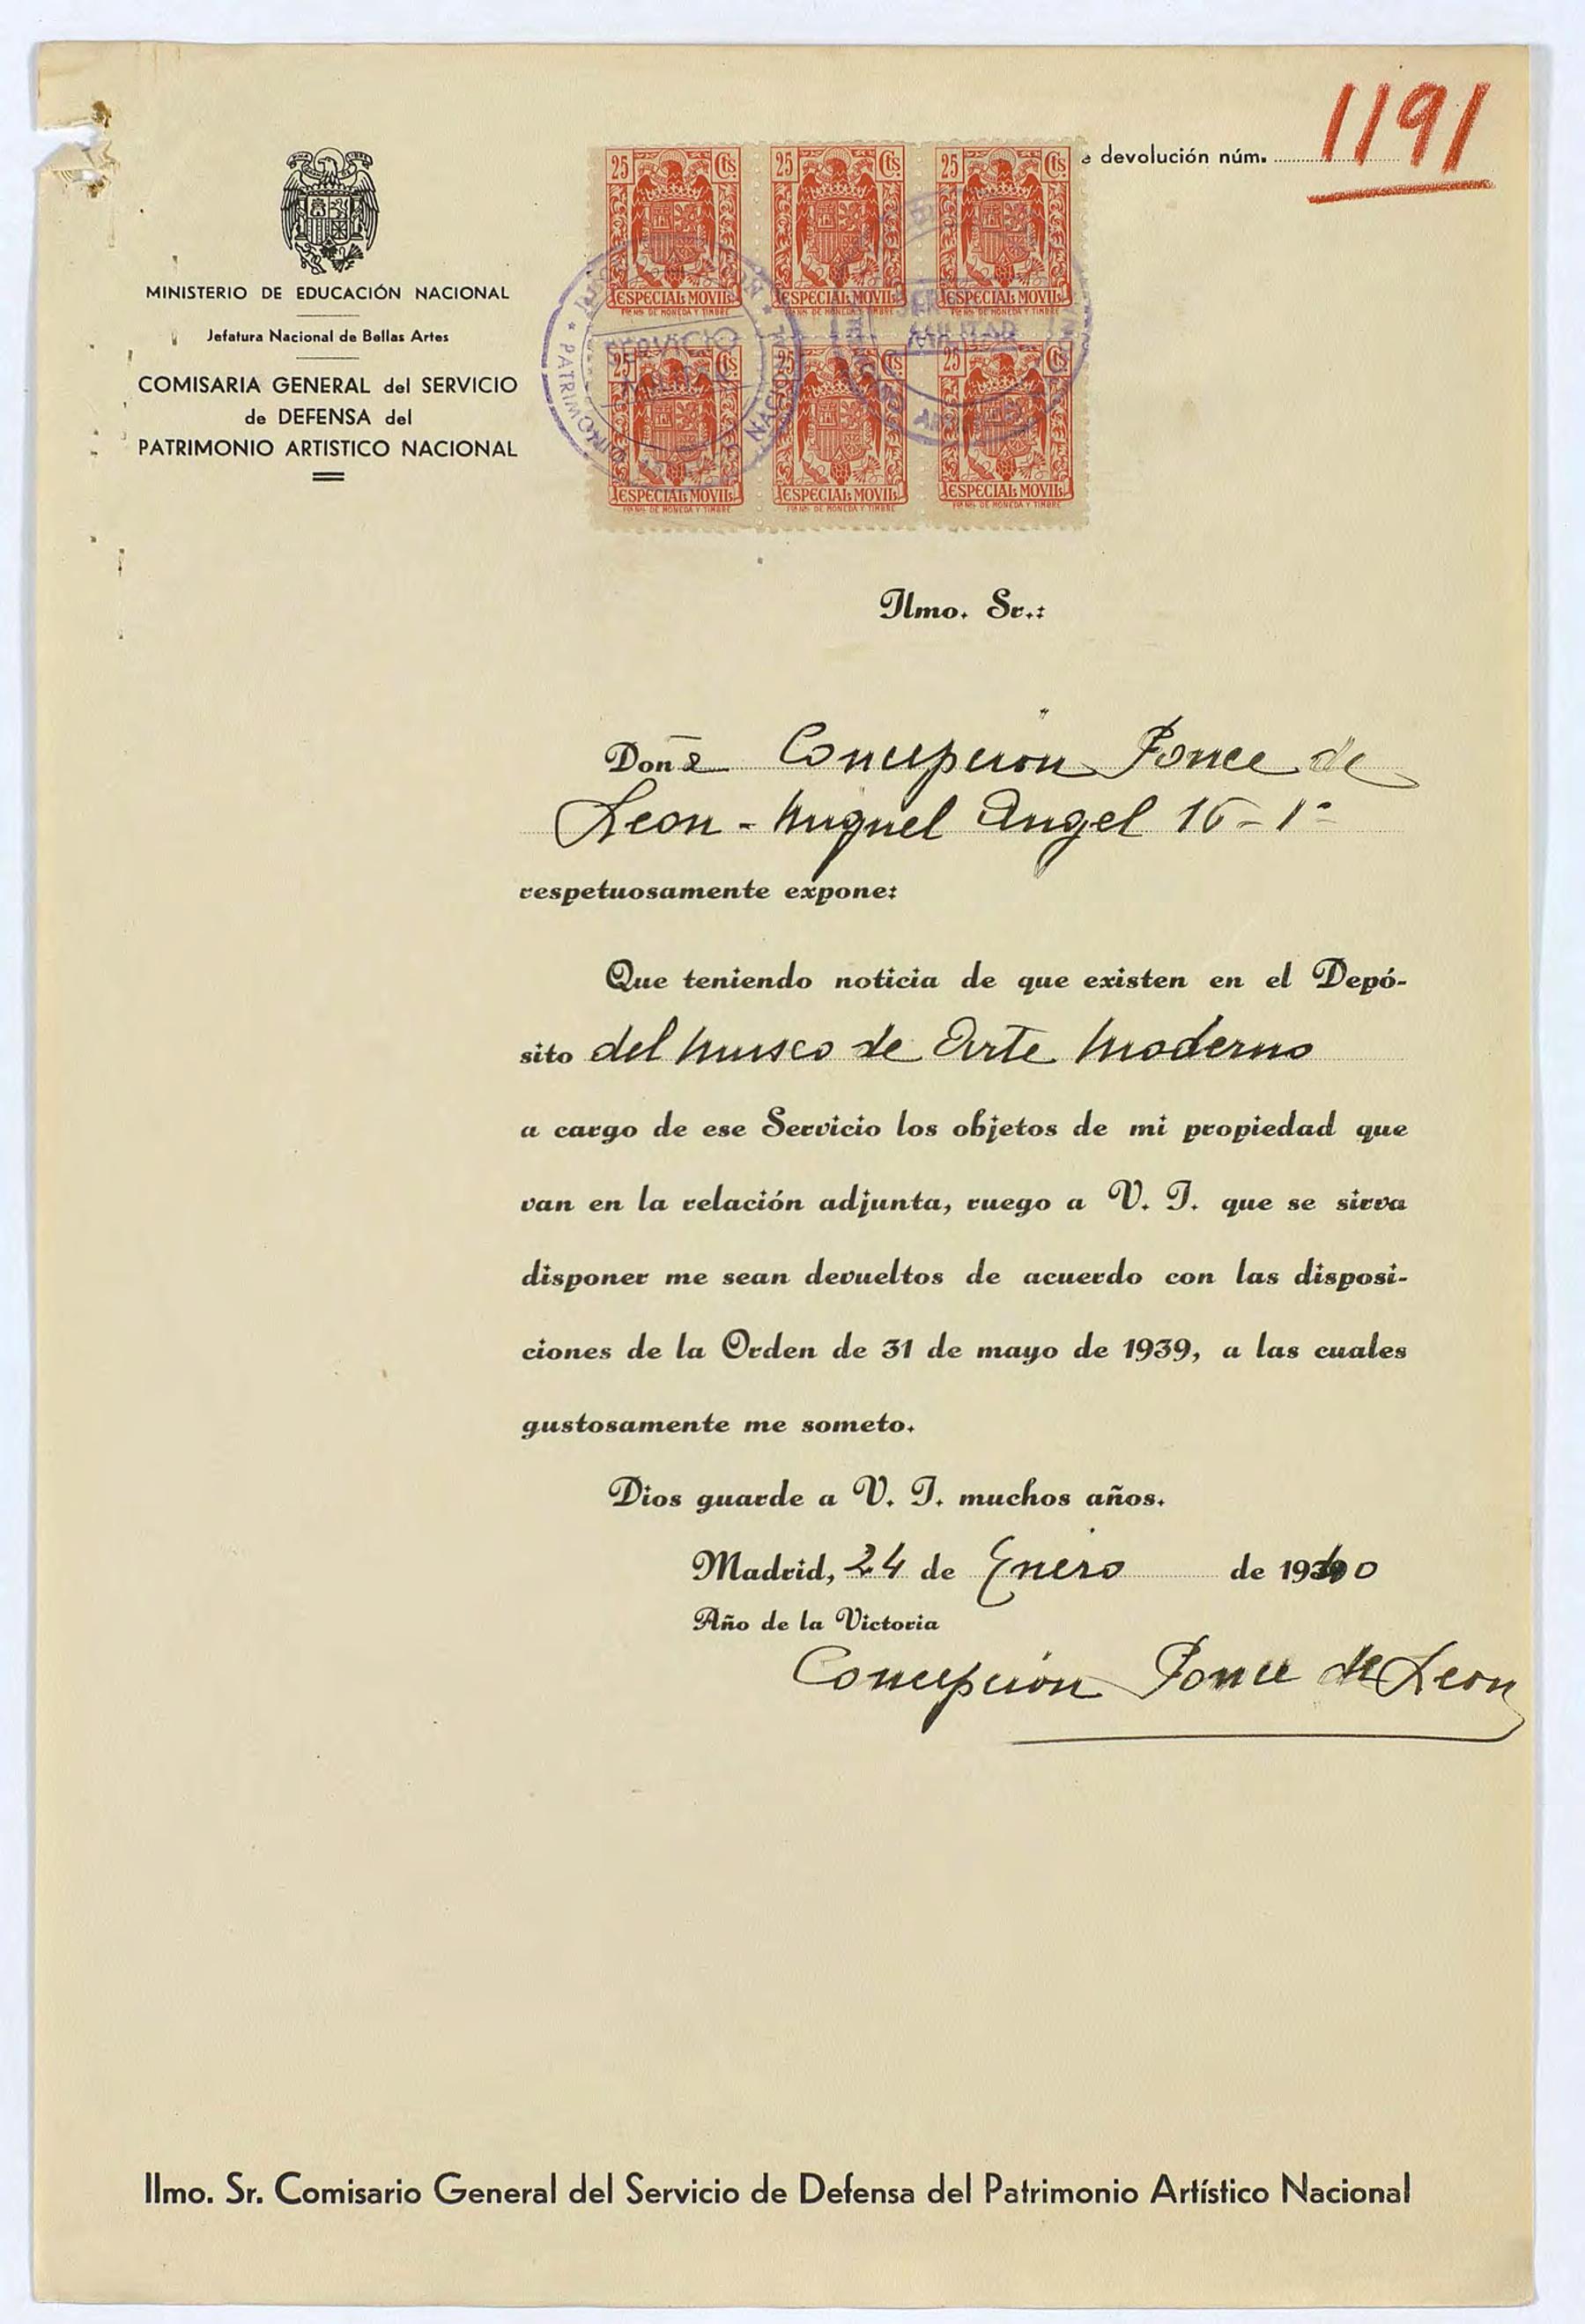 1191
devolución núm.
MINISTERIO DE EDUCACIÓN NACIONAL
Jefatura Nacional de Bellas Artes
COMISARIA GENERAL del SERVICIO
de DEFENSA del
PATRIMONIO ARTISTICO NACIONAL
25 Cts 25 Cts 25 Cts
ESPECIAL MOVIL ESPECIAL MOVIL ESPECIAL MOVIL
Fca. Nal. DE MONEDA Y TIMBRE Fca. Nal. DE MONEDA Y TIMBRE Fca. Nal. DE MONEDA Y TIMBRE
SERVICIO MILITAR
PATRIMONIO NACIONAL
25 Cts 25 Cts 25 Cts
ESPECIAL MOVIL ESPECIAL MOVIL ESPECIAL MOVIL
Fca. Nal. DE MONEDA Y TIMBRE Fca. Nal. DE MONEDA Y TIMBRE Fca. Nal. DE MONEDA Y TIMBRE
Ilmo. Sr.:
Don a Concepcion Ponce de
Leon - Miguel Angel 16 - 1º
respetuosamente expone:
Que teniendo noticia de que existen en el Depó-
sito del Museo de Arte Moderno
a cargo de ese Servicio los objetos de mi propiedad que
van en la relación adjunta, ruego a V. I. que se sirva
disponer me sean devueltos de acuerdo con las disposi-
ciones de la Orden de 31 de mayo de 1939, a las cuales
gustosamente me someto.
Dios guarde a V. I. muchos años.
Madrid, 24 de Enero de 1940
Año de la Victoria
Concepción Ponce de Leon
Ilmo. Sr. Comisario General del Servicio de Defensa del Patrimonio Artístico Nacional